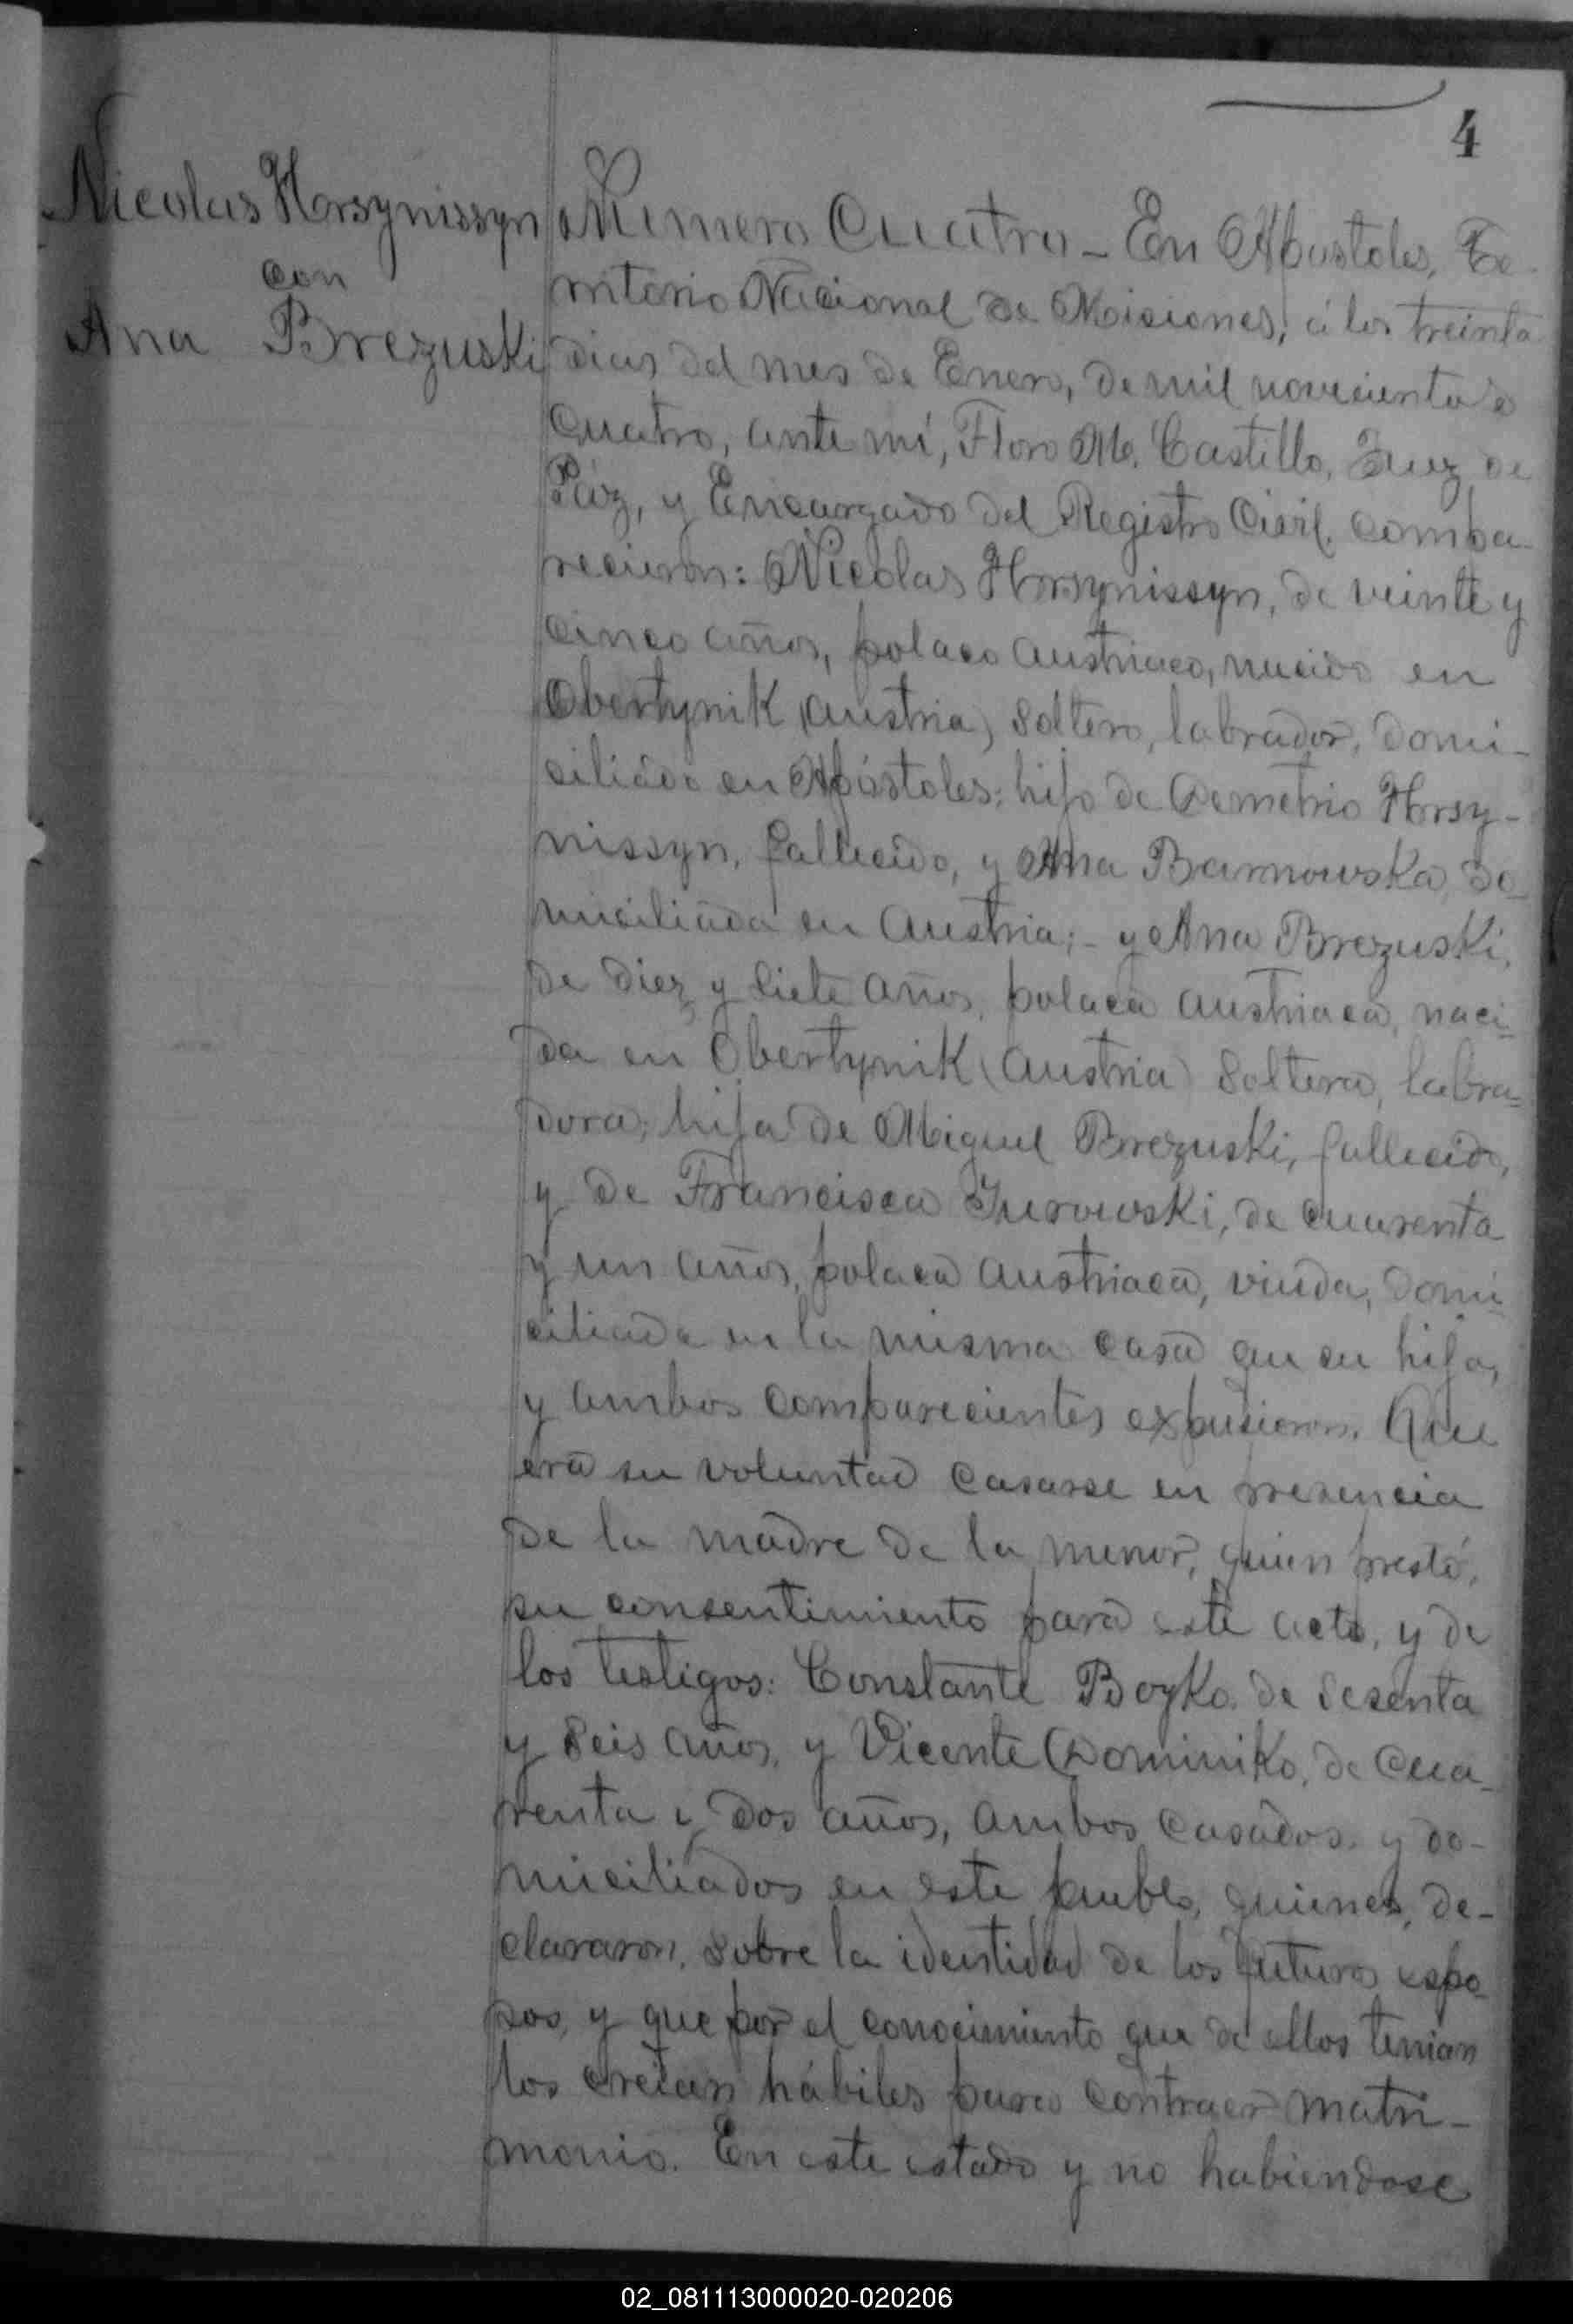 4
Nicolas Horsynissyn
con
Ana Brezuski
Numero Cuatro - En Apostoles, Te-
rritorio Nacional de Misiones, á los treinta
dias del mes de Enero, de mil novecientos
cuatro, ante mí, Floro M. Castillo, Juez de
Páz, y Encargado del Registro Civil, compa-
recieron: Nicolas Horsynissyn, de veinte y
cinco años, polaco austriaco, nacido en
Obertynik (Austria) soltero, labrador, domi-
ciliado en Apóstoles; hijo de Demetrio Horsy-
nissyn, fallecido, y Ana Barnowska, do-
miciliada en Austria; - y Ana Brezuski,
de diez y siete años, polaca austriaca, naci-
da en Obertynik (Austria) soltera, labra-
dora; hija de Miguel Brezuski, fallecido,
y de Francisca Jurowski, de cuarenta
y un años, polaca austriaca, viuda, domi-
ciliada en la misma casa que su hija,
y ambos comparecientes expusieron. Que
era su voluntad casarse en presencia
de la madre de la menor, quien prestó,
su consentimiento para este acto, y de
los testigos: Constante Boyko, de sesenta
y seis años, y Vicente Dominiko, de cua-
renta y dos años, ambos casados y do-
miciliados en este pueblo, quienes, de-
clararon, sobre la identidad de los futuros espo-
sos, y que por el conocimiento que de ellos tenian
los creian hábiles para contraer matri-
monio. En este estado y no habiendose
02_081113000020-020206